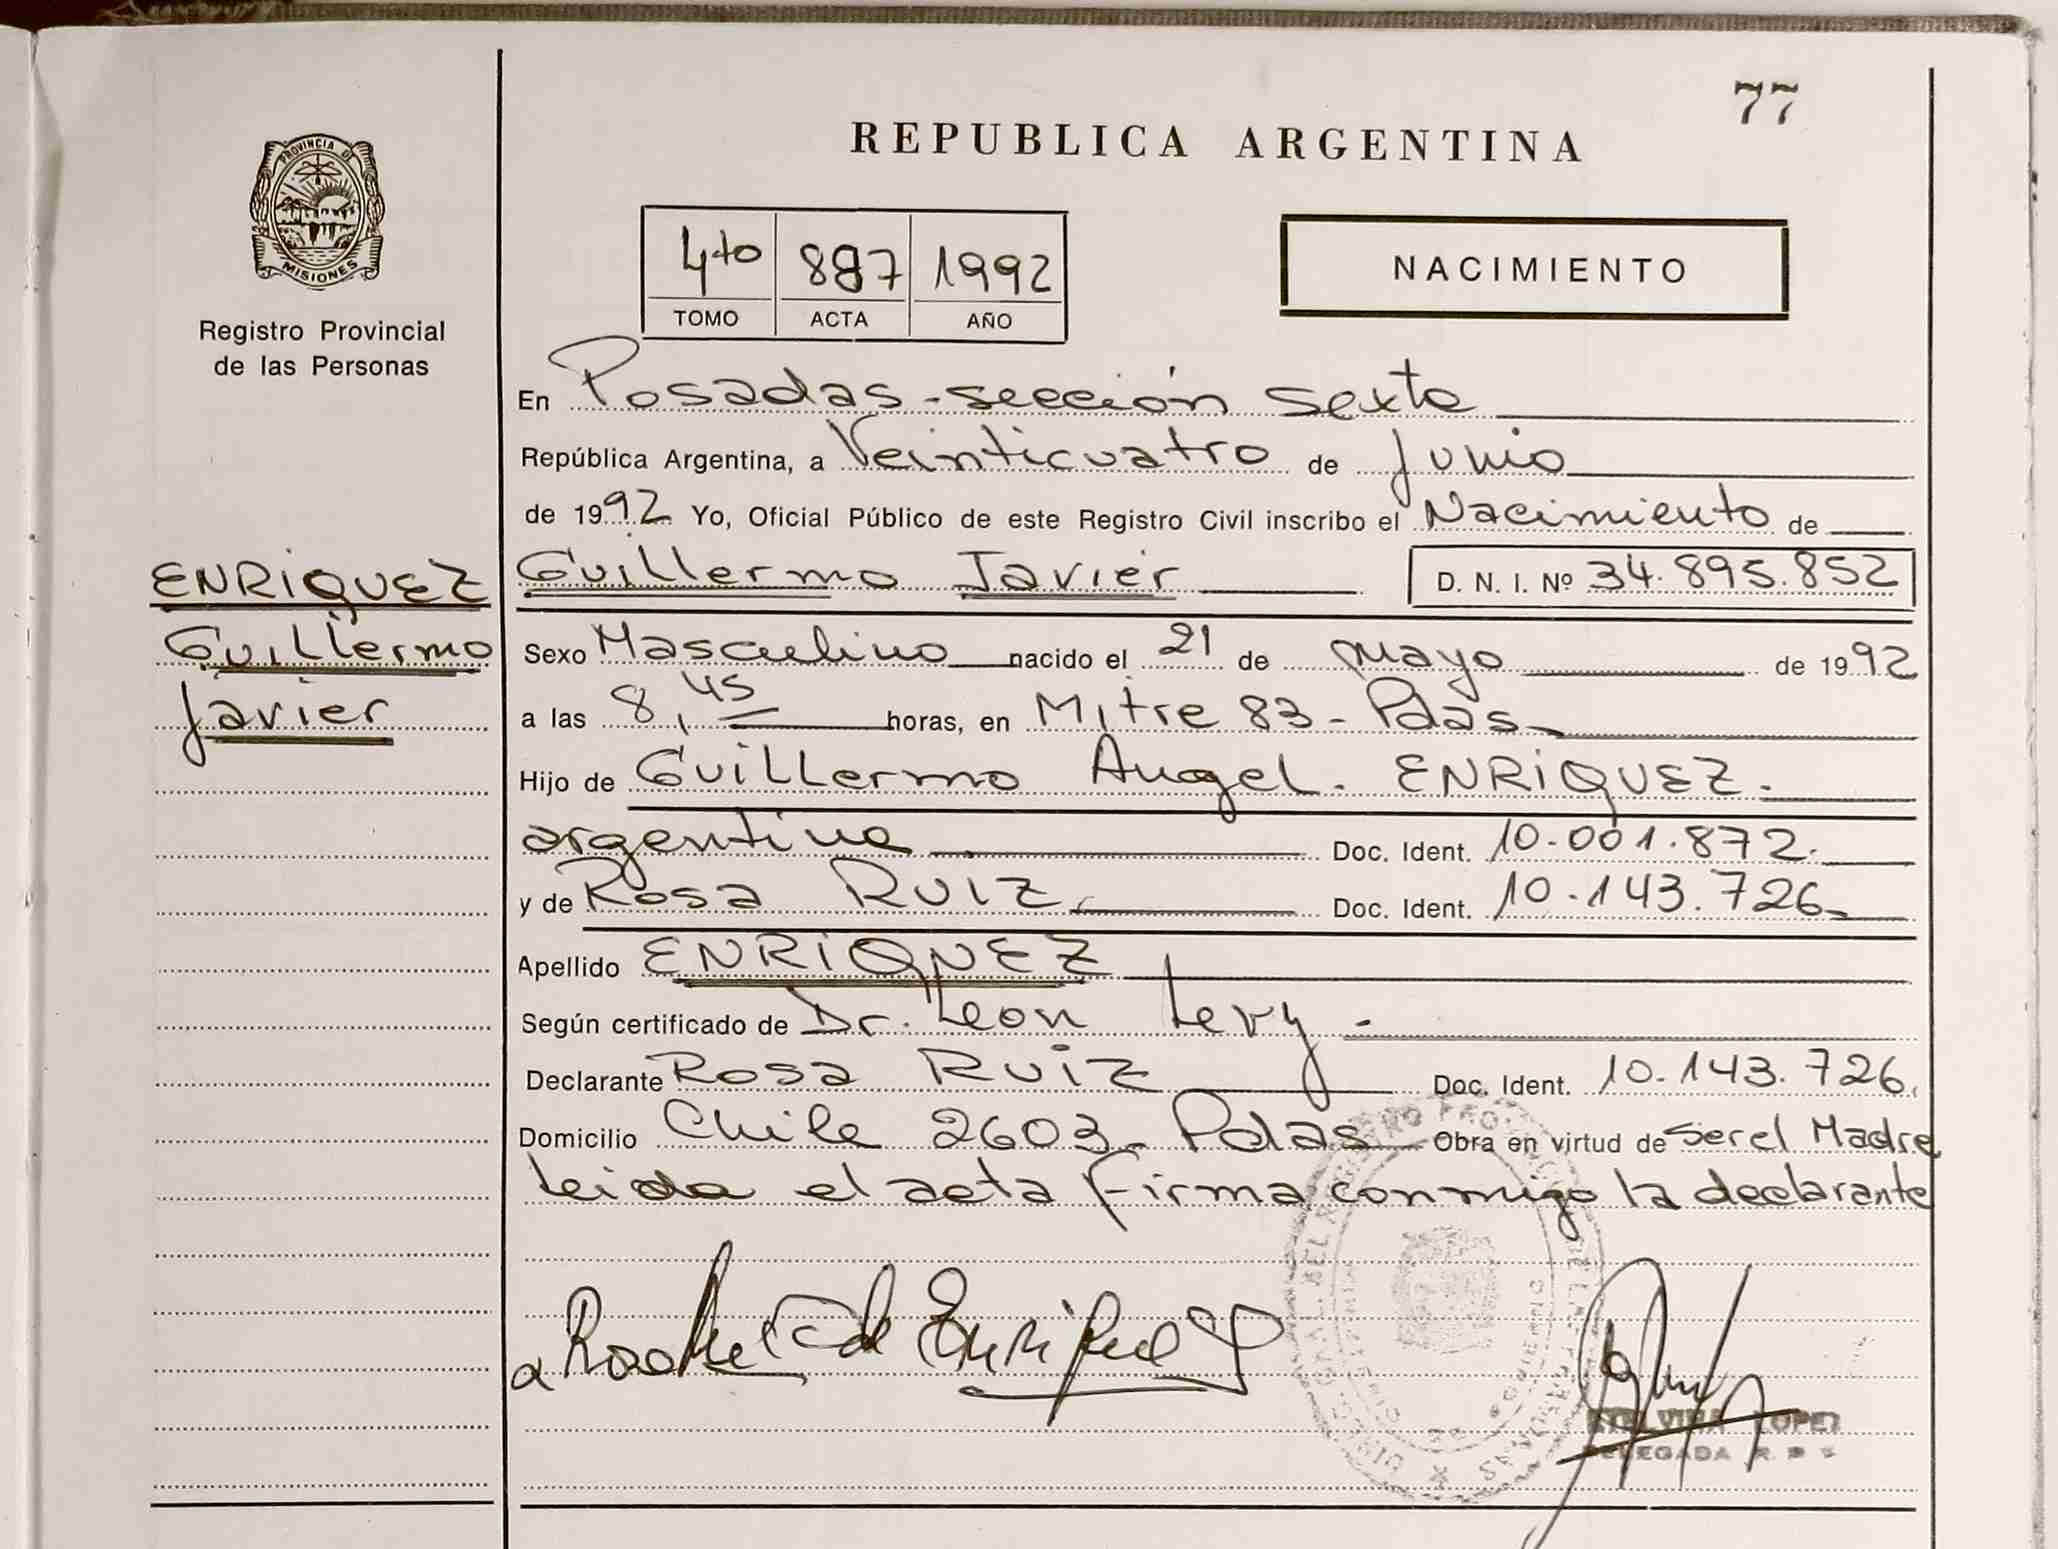 77
REPUBLICA ARGENTINA
PROVINCIA DE
MISIONES
Registro Provincial
de las Personas
4to 887 1992
TOMO ACTA AÑO
NACIMIENTO
En Posadas - sección sexta
República Argentina, a Veinticuatro de Junio
de 1992 Yo, Oficial Público de este Registro Civil inscribo el Nacimiento de
ENRIQUEZ
Guillermo
Javier
Guillermo Javier D. N. I. Nº 34.895.852
Sexo Masculino nacido el 21 de mayo de 1992
a las 8,45 horas, en Mitre 83 - Pdas.
Hijo de Guillermo Angel. ENRIQUEZ.
argentino Doc. Ident. 10.001.872.
y de Rosa RUIZ. Doc. Ident. 10.143.726
Apellido ENRIQUEZ
Según certificado de Dr. Leon Levy -
Declarante Rosa RUIZ Doc. Ident. 10.143.726.
Domicilio Chile 2603 - Pdas Obra en virtud de ser el Madre
leida el acta firma conmigo la declarante
de Enriquez
LOPEZ
DELEGADA R. P.